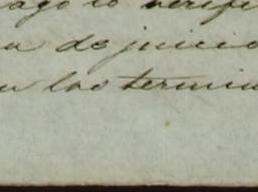 ago lo verifi
a de juicio
en los termin